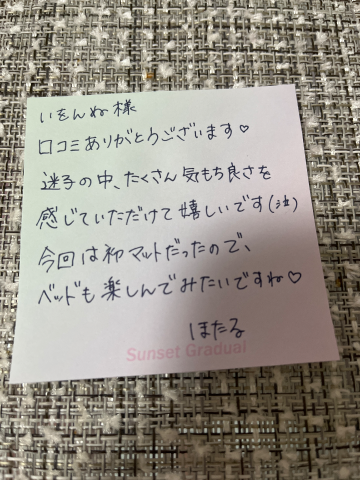 いをんね様
口コミありがとうございます♡
迷子の中、たくさん気もち良さを
感じていただけて嬉しいです(泣)
今回は初マットだったので、
ベッドも楽しんでみたいですね♡
ほたる
Sunset Graduai